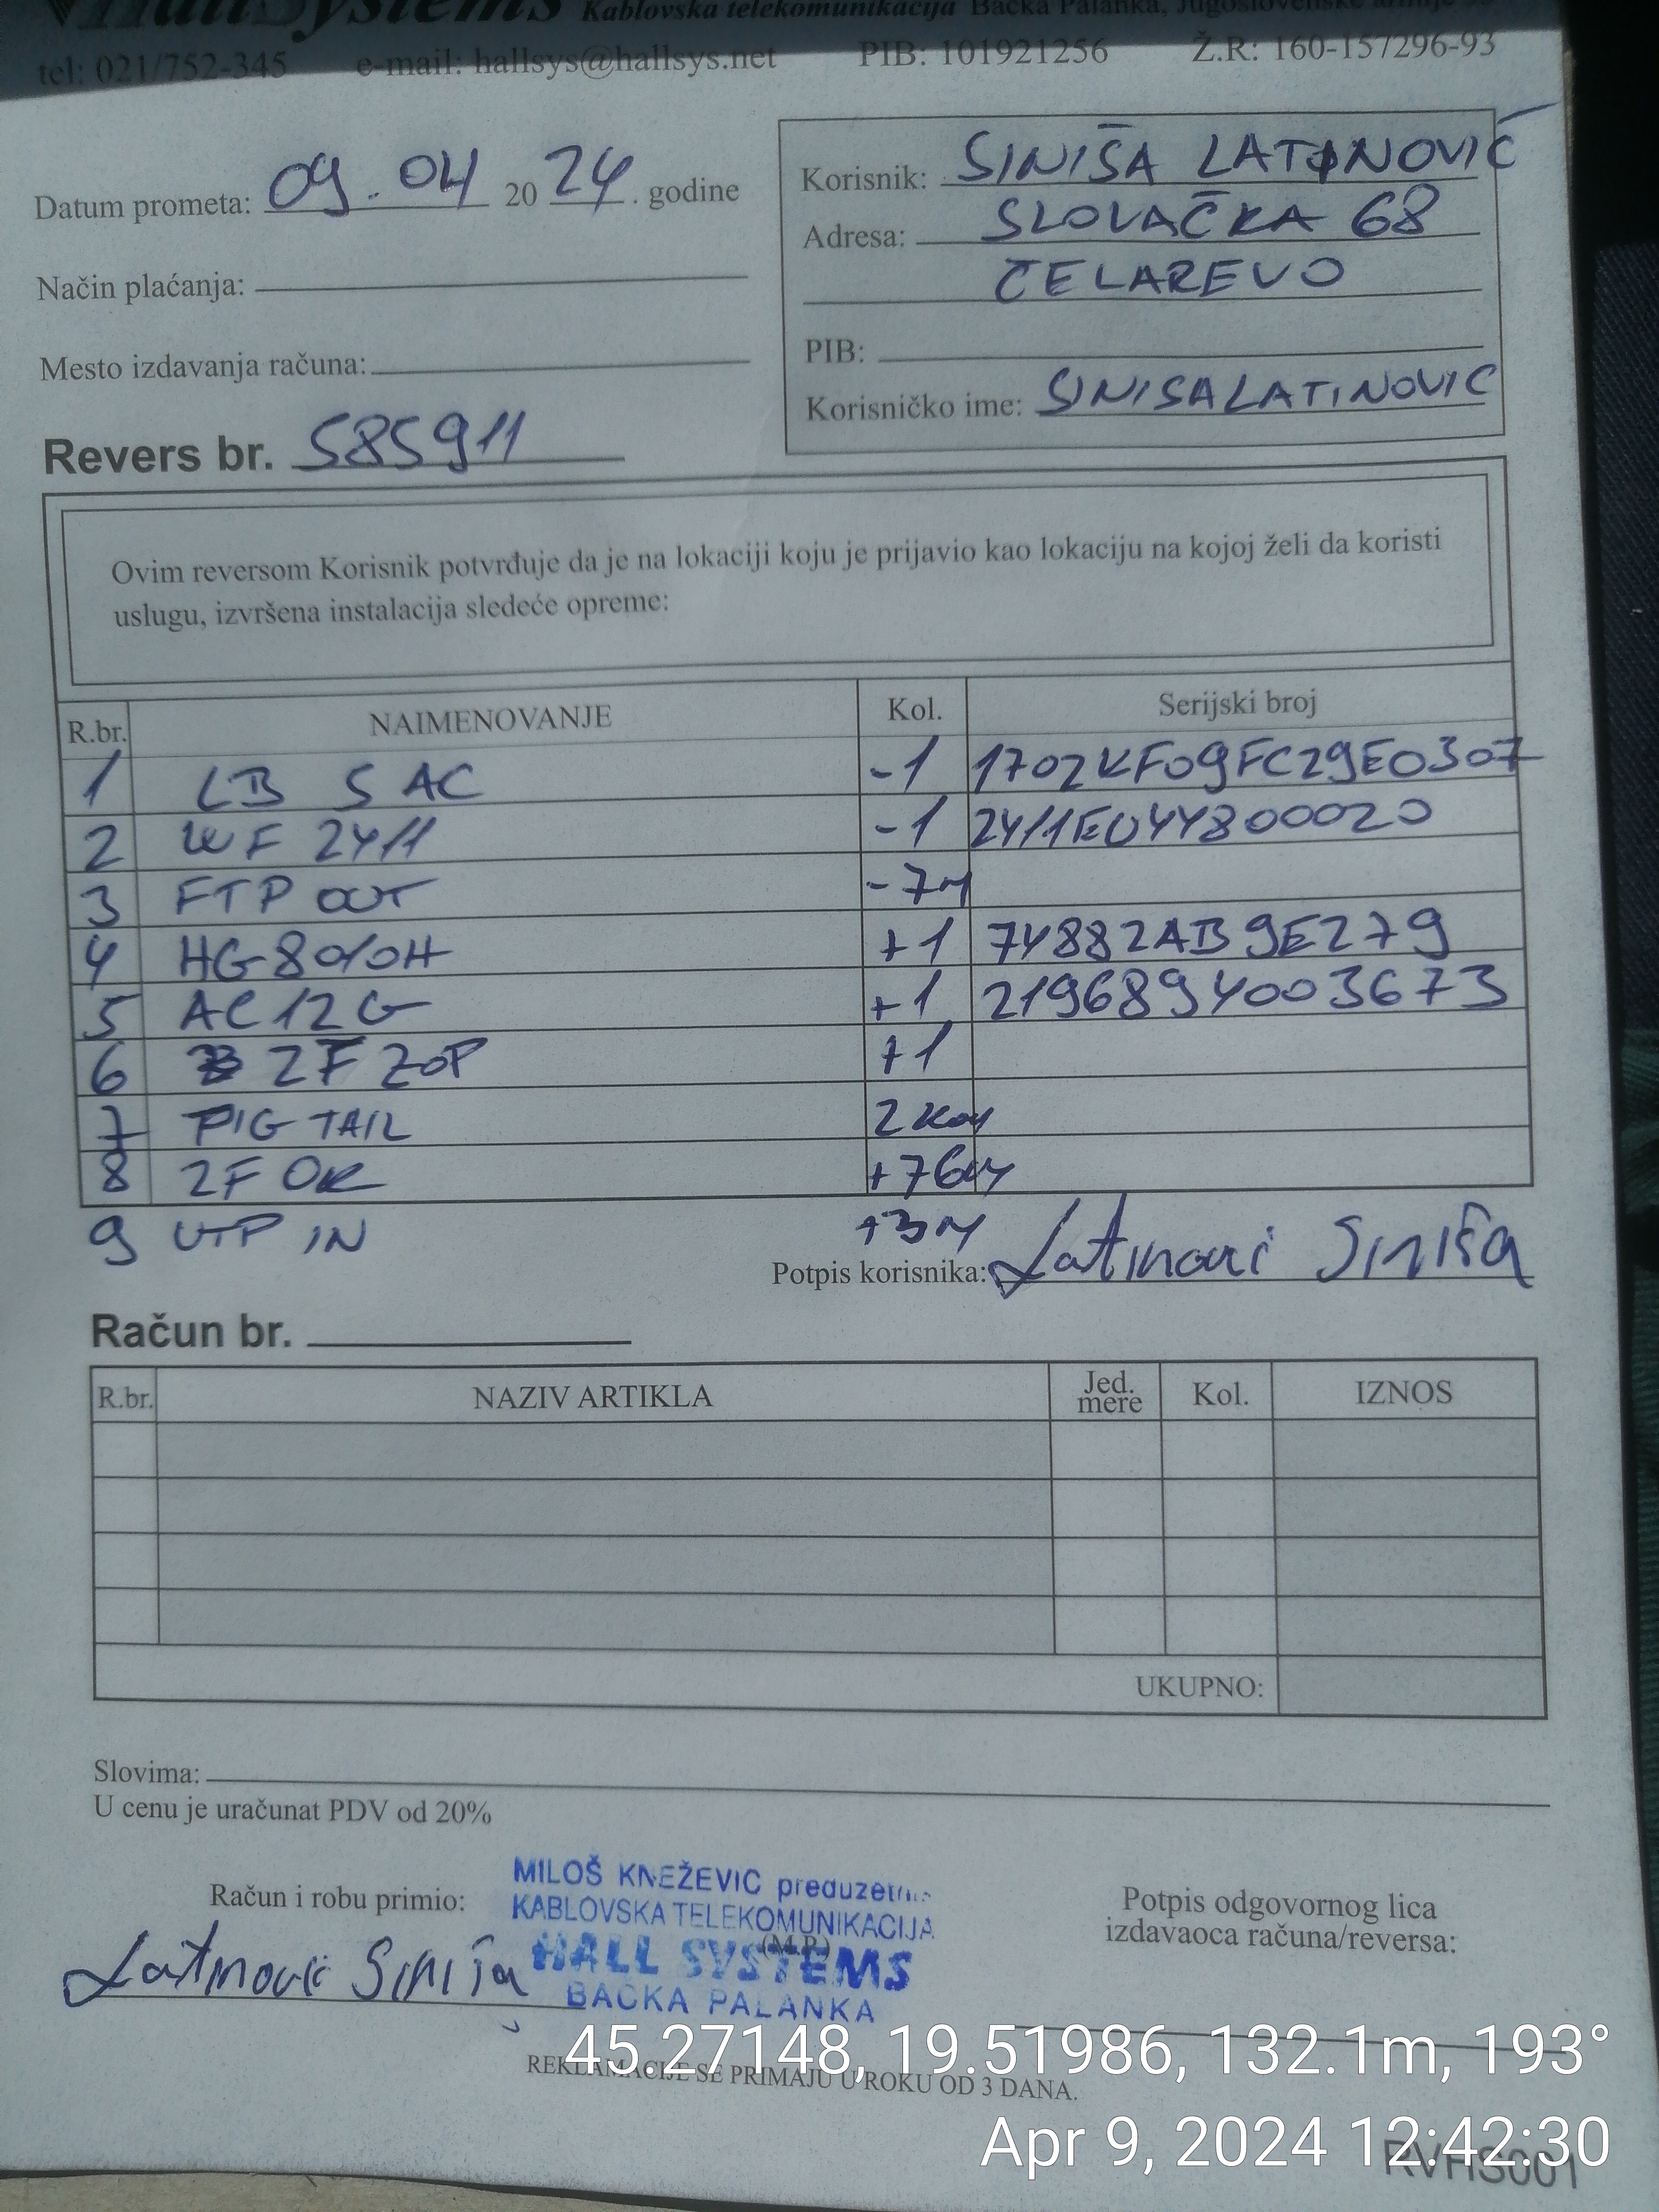 Hall Systems Kablovska telekomunikacija Bačka Palanka, Jugoslovenske armije
tel: 021/752-345 e-mail: hallsys@hallsys.net PIB: 101921256 Ž.R: 160-157296-93
Datum prometa: 09.04 2024. godine
Korisnik: SINIŠA LATINOVIĆ
Adresa: SLOVAČKA 68
ČELAREVO
Način plaćanja:
Mesto izdavanja računa:
PIB:
Korisničko ime: SINISALATINOVIC
Revers br. 585911
Ovim reversom Korisnik potvrđuje da je na lokaciji koju je prijavio kao lokaciju na kojoj želi da koristi
uslugu, izvršena instalacija sledeće opreme:
R.br. NAIMENOVANJE Kol. Serijski broj
1 LB 5 AC -1 1702KF09FC29E0307
2 WF 2411 -1 2411E044800020
3 FTP OUT -7m
4 HG8010H +1 74882AB9E279
5 AC12G +1 2196894003673
6 2F ZOP +1
7 PIG TAIL 2 kom
8 2F OK +76m
9 UTP IN +3m
Potpis korisnika: Latinović Siniša
Račun br.
R.br. NAZIV ARTIKLA Jed. mere Kol. IZNOS
UKUPNO:
Slovima:
U cenu je uračunat PDV od 20%
Račun i robu primio:
Latinović Siniša
MILOŠ KNEŽEVIĆ preduzetnik
KABLOVSKA TELEKOMUNIKACIJA
(M.P.)
HALL SYSTEMS
BAČKA PALANKA
Potpis odgovornog lica
izdavaoca računa/reversa:
REKLAMACIJE SE PRIMAJU U ROKU OD 3 DANA.
45.27148, 19.51986, 132.1m, 193°
Apr 9, 2024 12:42:30
RVHS001